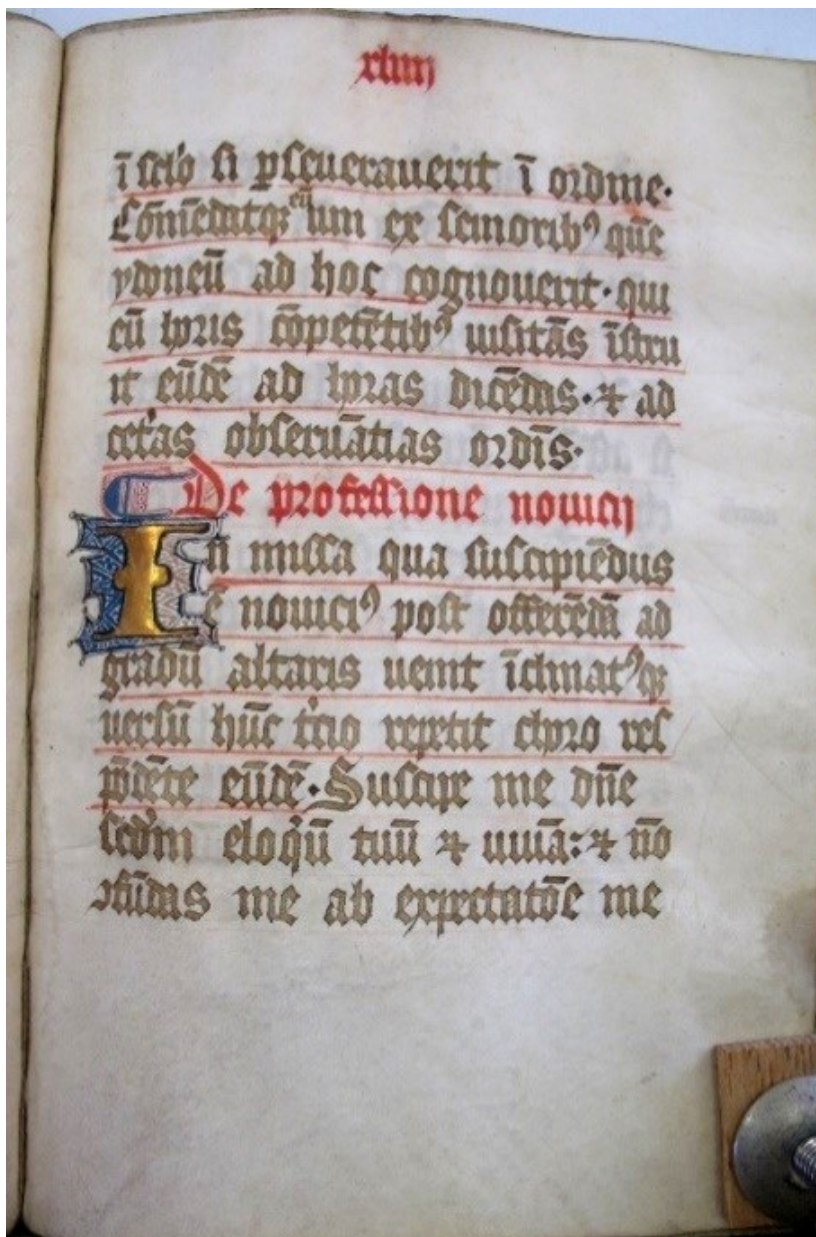 xliiij
ī sclo si ꝑseuerauerit ī ordine·
Cōmēdatqꝫ eū uni ex seniorib⁹ quē
ydoneū ad hoc cognouerit· qui
eū horis cōpetētib⁹ uisitās īstru
it eūdē ad horas dicēdas· ⁊ ad
cetas obseruātias ordīs·
De professione nouicij
In missa qua suscipiēdus
ē nouici⁹ post offerēdā ad
gradū altaris uenit īclinat⁹qꝫ
uersū hūc trio repetit choro res
pōdēte eūdē· Suscipe me dn̄e
scdm eloqū tuū ⁊ uiuā: ⁊ nō
ꝯfūdas me ab expectatōe me